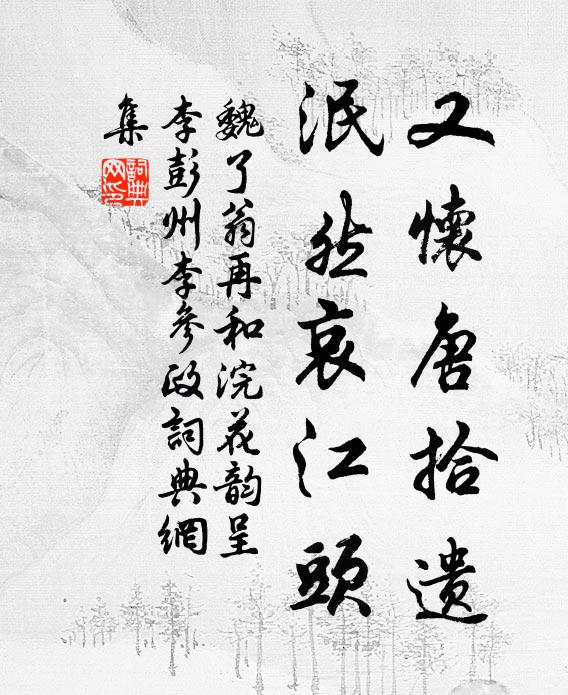 又懷唐拾遺
泯然哀江頭
魏了翁再和浣花韵呈
李彭州李參政詞典網
集
詞典
网印